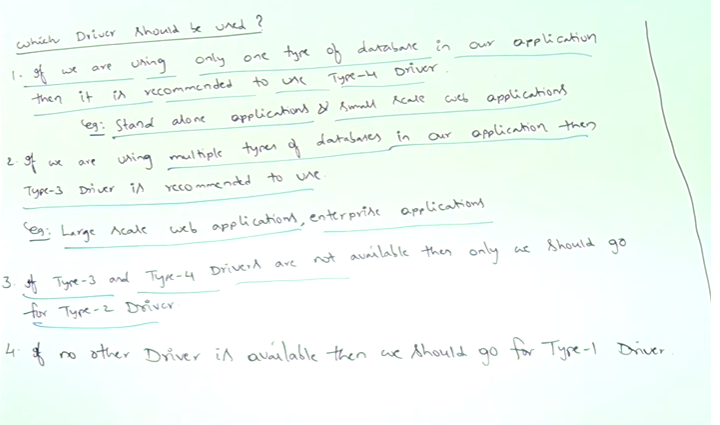 Which Driver should be used?
1. If we are using only one type of database in our application
then it is recommended to use Type-4 Driver.
eg: Stand alone applications & small scale web applications
2. If we are using multiple types of databases in our application then
Type-3 Driver is recommended to use.
eg: Large scale web applications, enterprise applications
3. If Type-3 and Type-4 Drivers are not available then only we should go
for Type-2 Driver.
4. If no other Driver is available then we should go for Type-1 Driver.